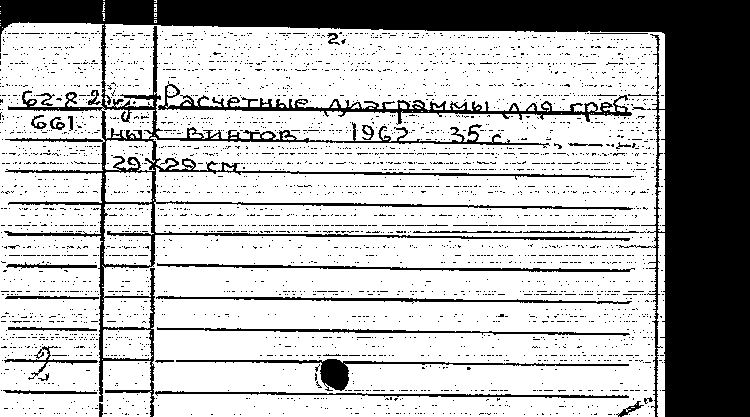 2.
62-8 2 экз — Расчетные диаграммы для греб-
661 ных винтов. 1962 35 с.
29×29 см.
2